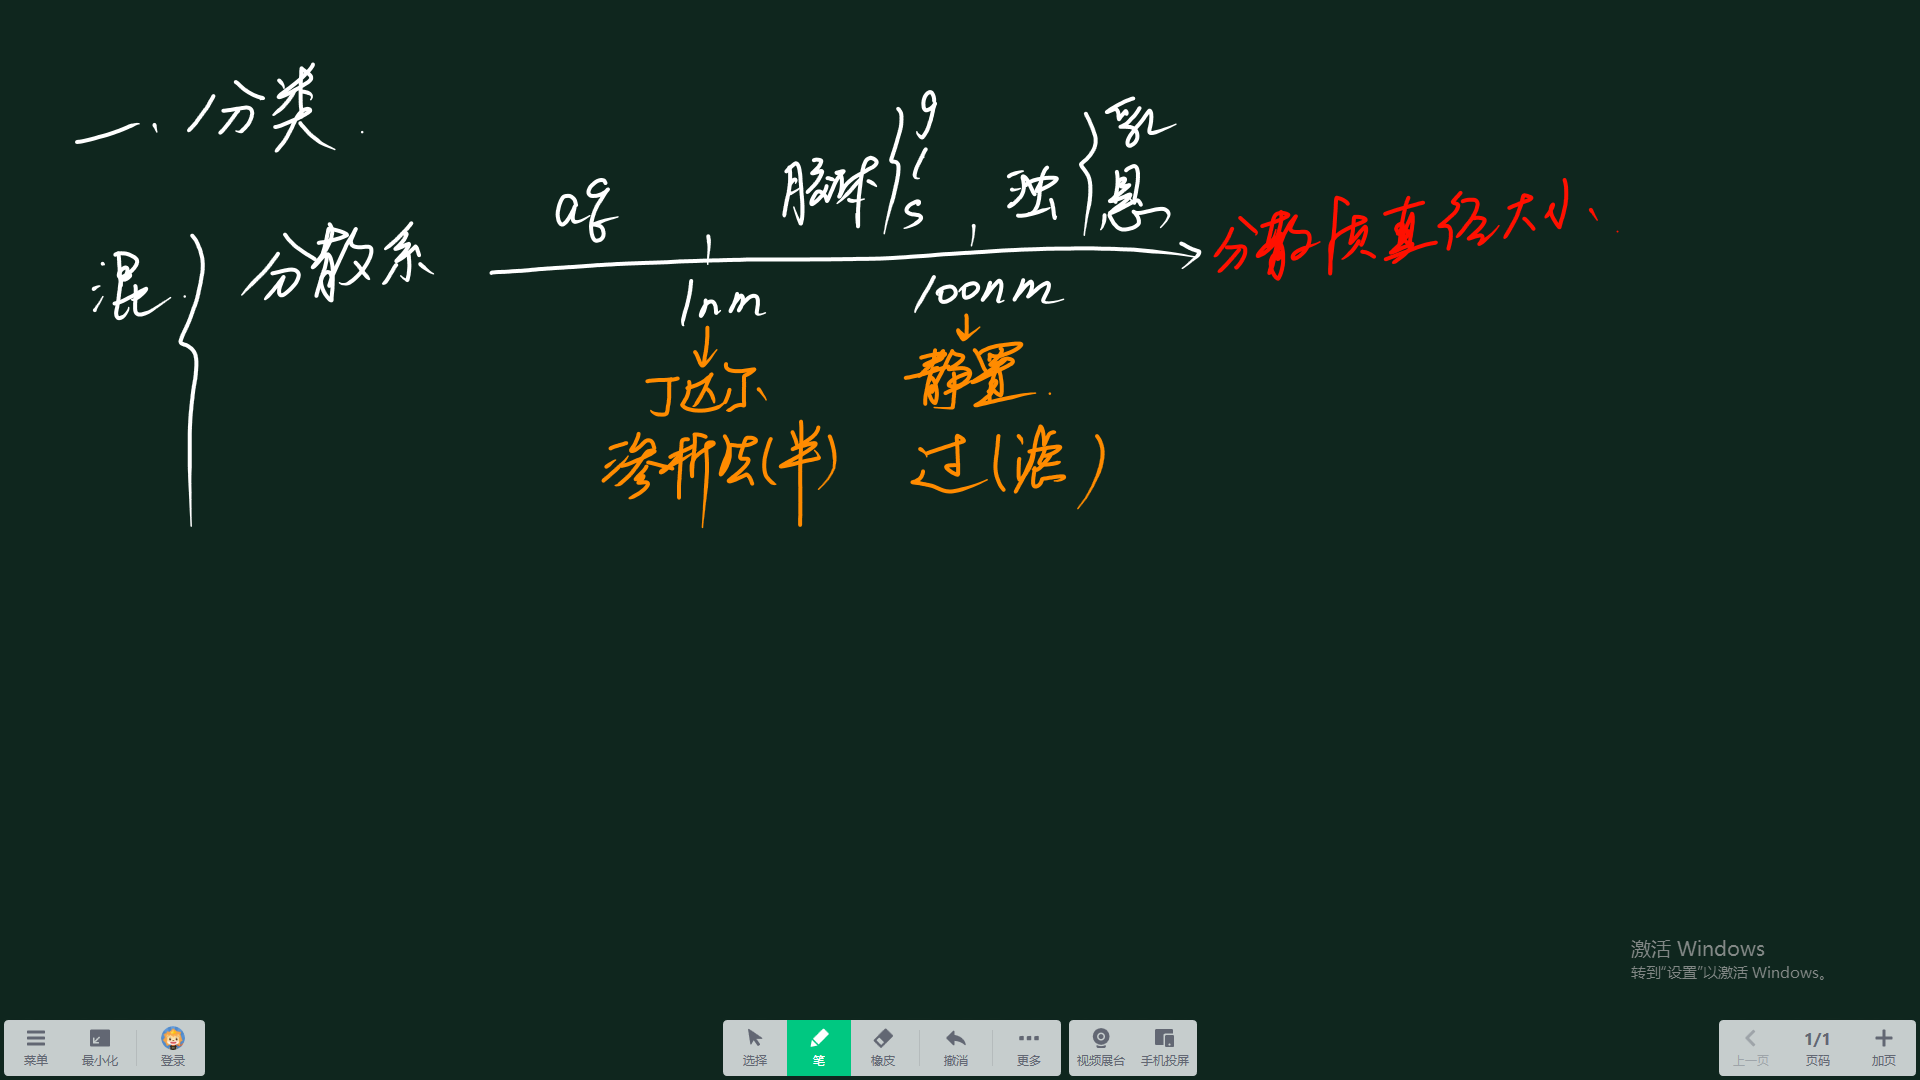 一、分类.
混. 分散系
aq 胶体 g l s 浊 乳 悬
分散质直径大小、
1nm 100nm
丁达尔 静置.
渗析法(半) 过(滤)
激活 Windows
转到“设置”以激活 Windows。
菜单 最小化 登录 选择 笔 橡皮 撤消 更多 视频展台 手机投屏 上一页 1/1 页码 加页